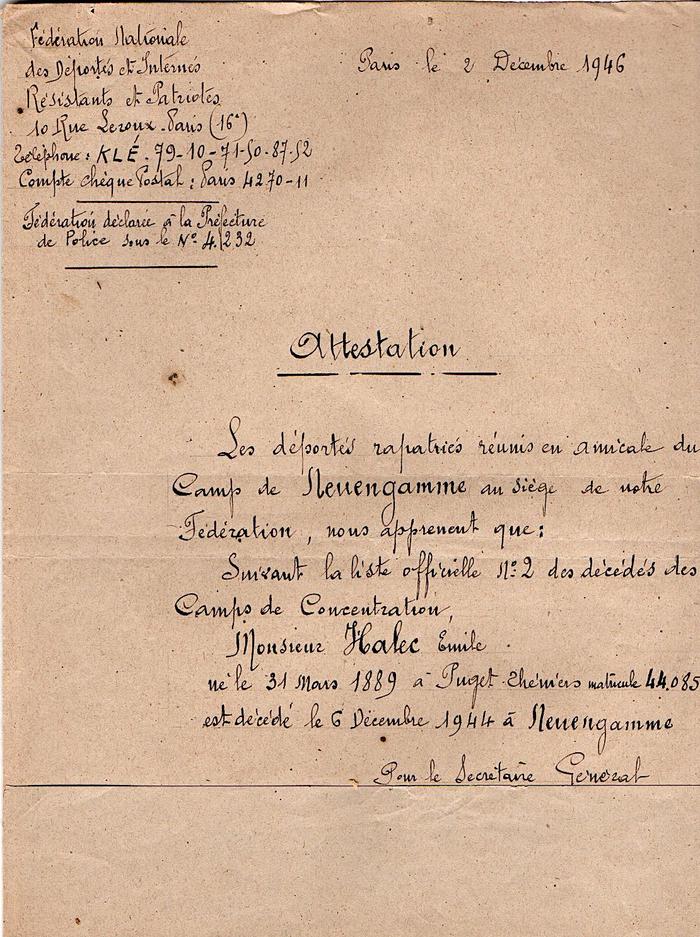 Fédération Nationale
des Déportés et Internés
Résistants et Patriotes
10 Rue Leroux. Paris (16ᵉ)
Téléphone : KLÉ. 79-10-71-50-87-52
Compte chèque Postal : Paris 4270-11
Fédération déclarée à la Préfecture
de Police sous le Nº 4.232
Paris le 2 Décembre 1946
Attestation
Les déportés rapatriés réunis en amicale du
Camp de Neuengamme au siège de notre
Fédération, nous apprenent que :
Suivant la liste officielle Nº 2 des décédés des
Camps de Concentration,
Monsieur Halec Emile
né le 31 Mars 1889 à Puget-Théniers matricule 44.085
est décédé le 6 Décembre 1944 à Neuengamme
Pour le Secrétaire General